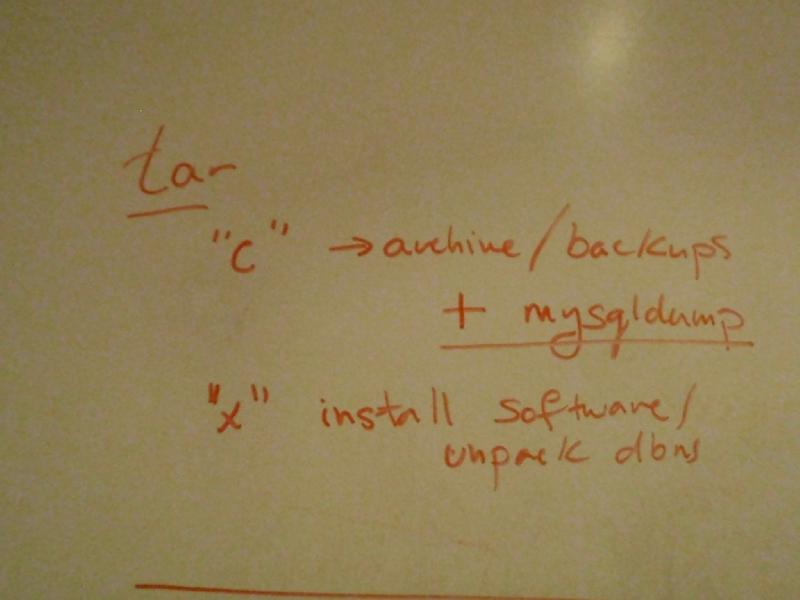 tar
"c" → archive/backups
+ mysqldump
"x" install software/
unpack